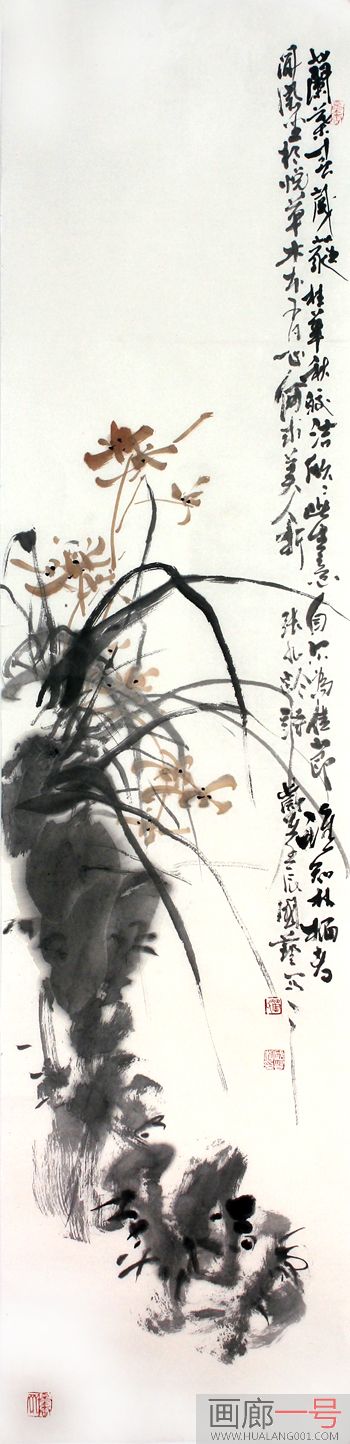 蘭葉春葳蕤桂華秋皎洁欣〻此生意自尔為佳節誰知林栖者
聞風坐相悦草木本有心何求美人折 張九齡詩 壬辰國藝寫
画廊一号
WWW.HUALANG001.COM